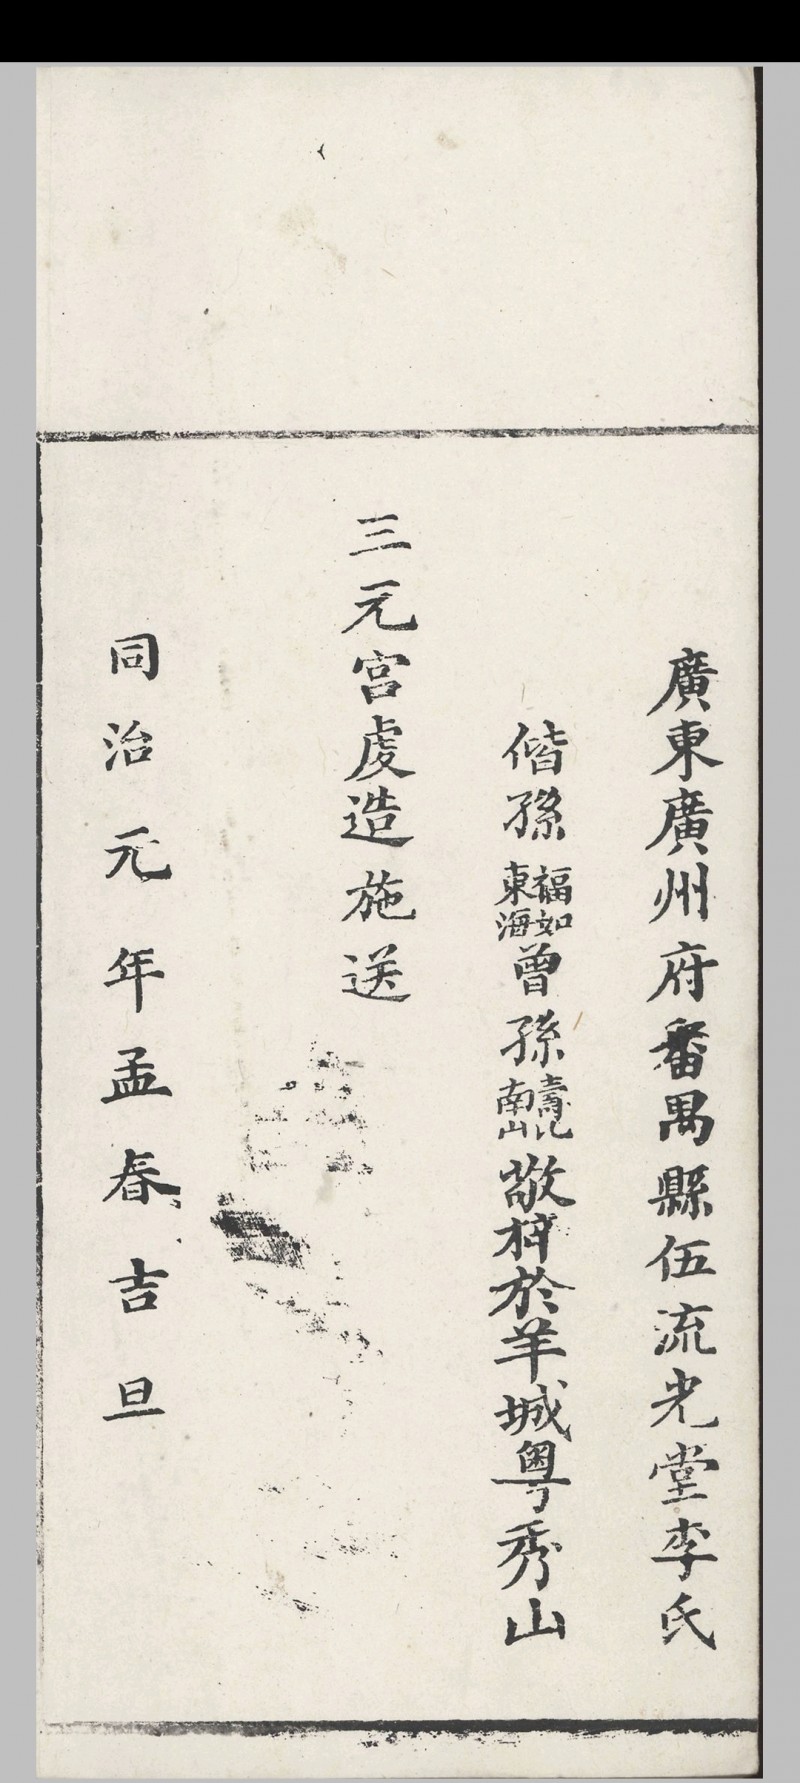 廣東廣州府番禺縣伍流光堂李氏
偕孫福如東海曾孫壽比南山敬梓於羊城粵秀山
三元宮虔造施送
同治元年孟春吉旦